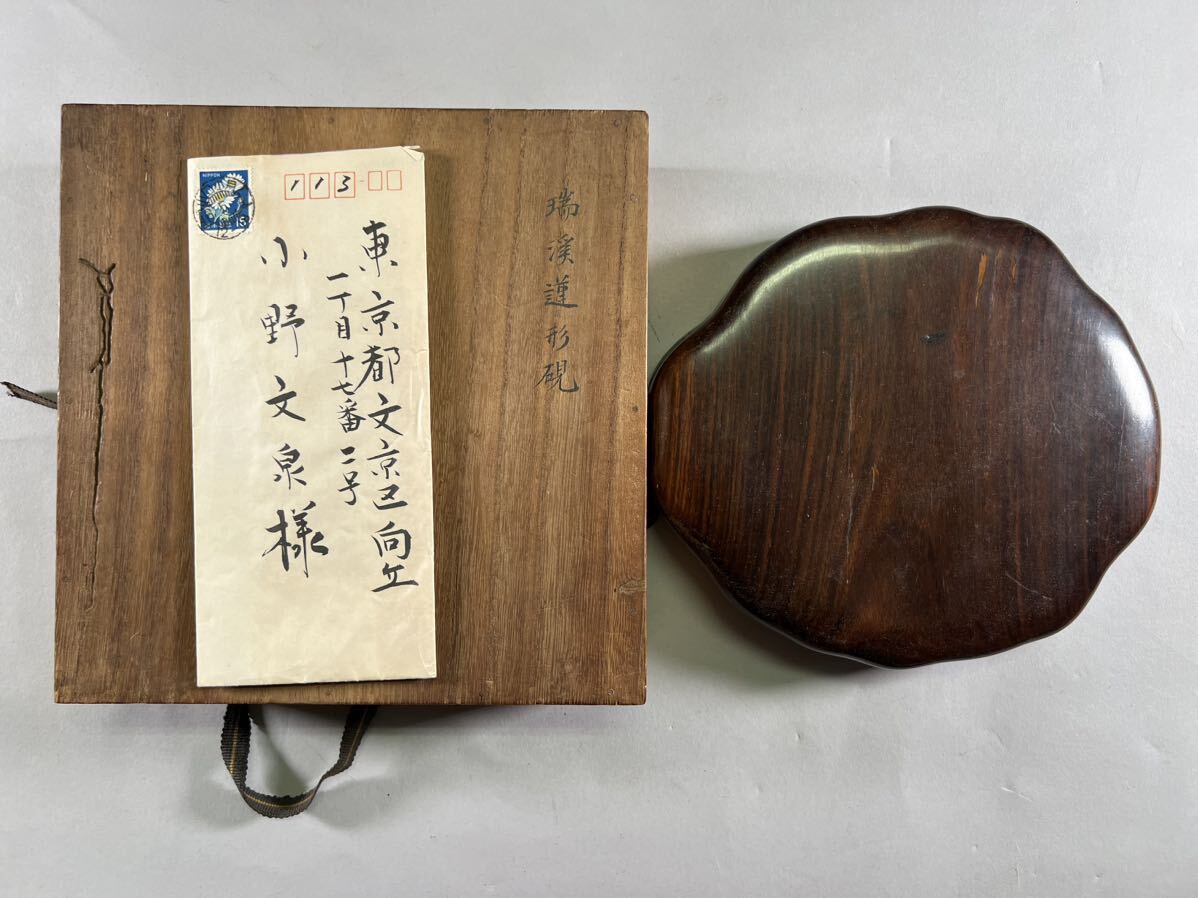 瑞溪蓮形硯
NIPPON
15
113
東京都文京区向丘
一丁目十七番二号
小野文泉様